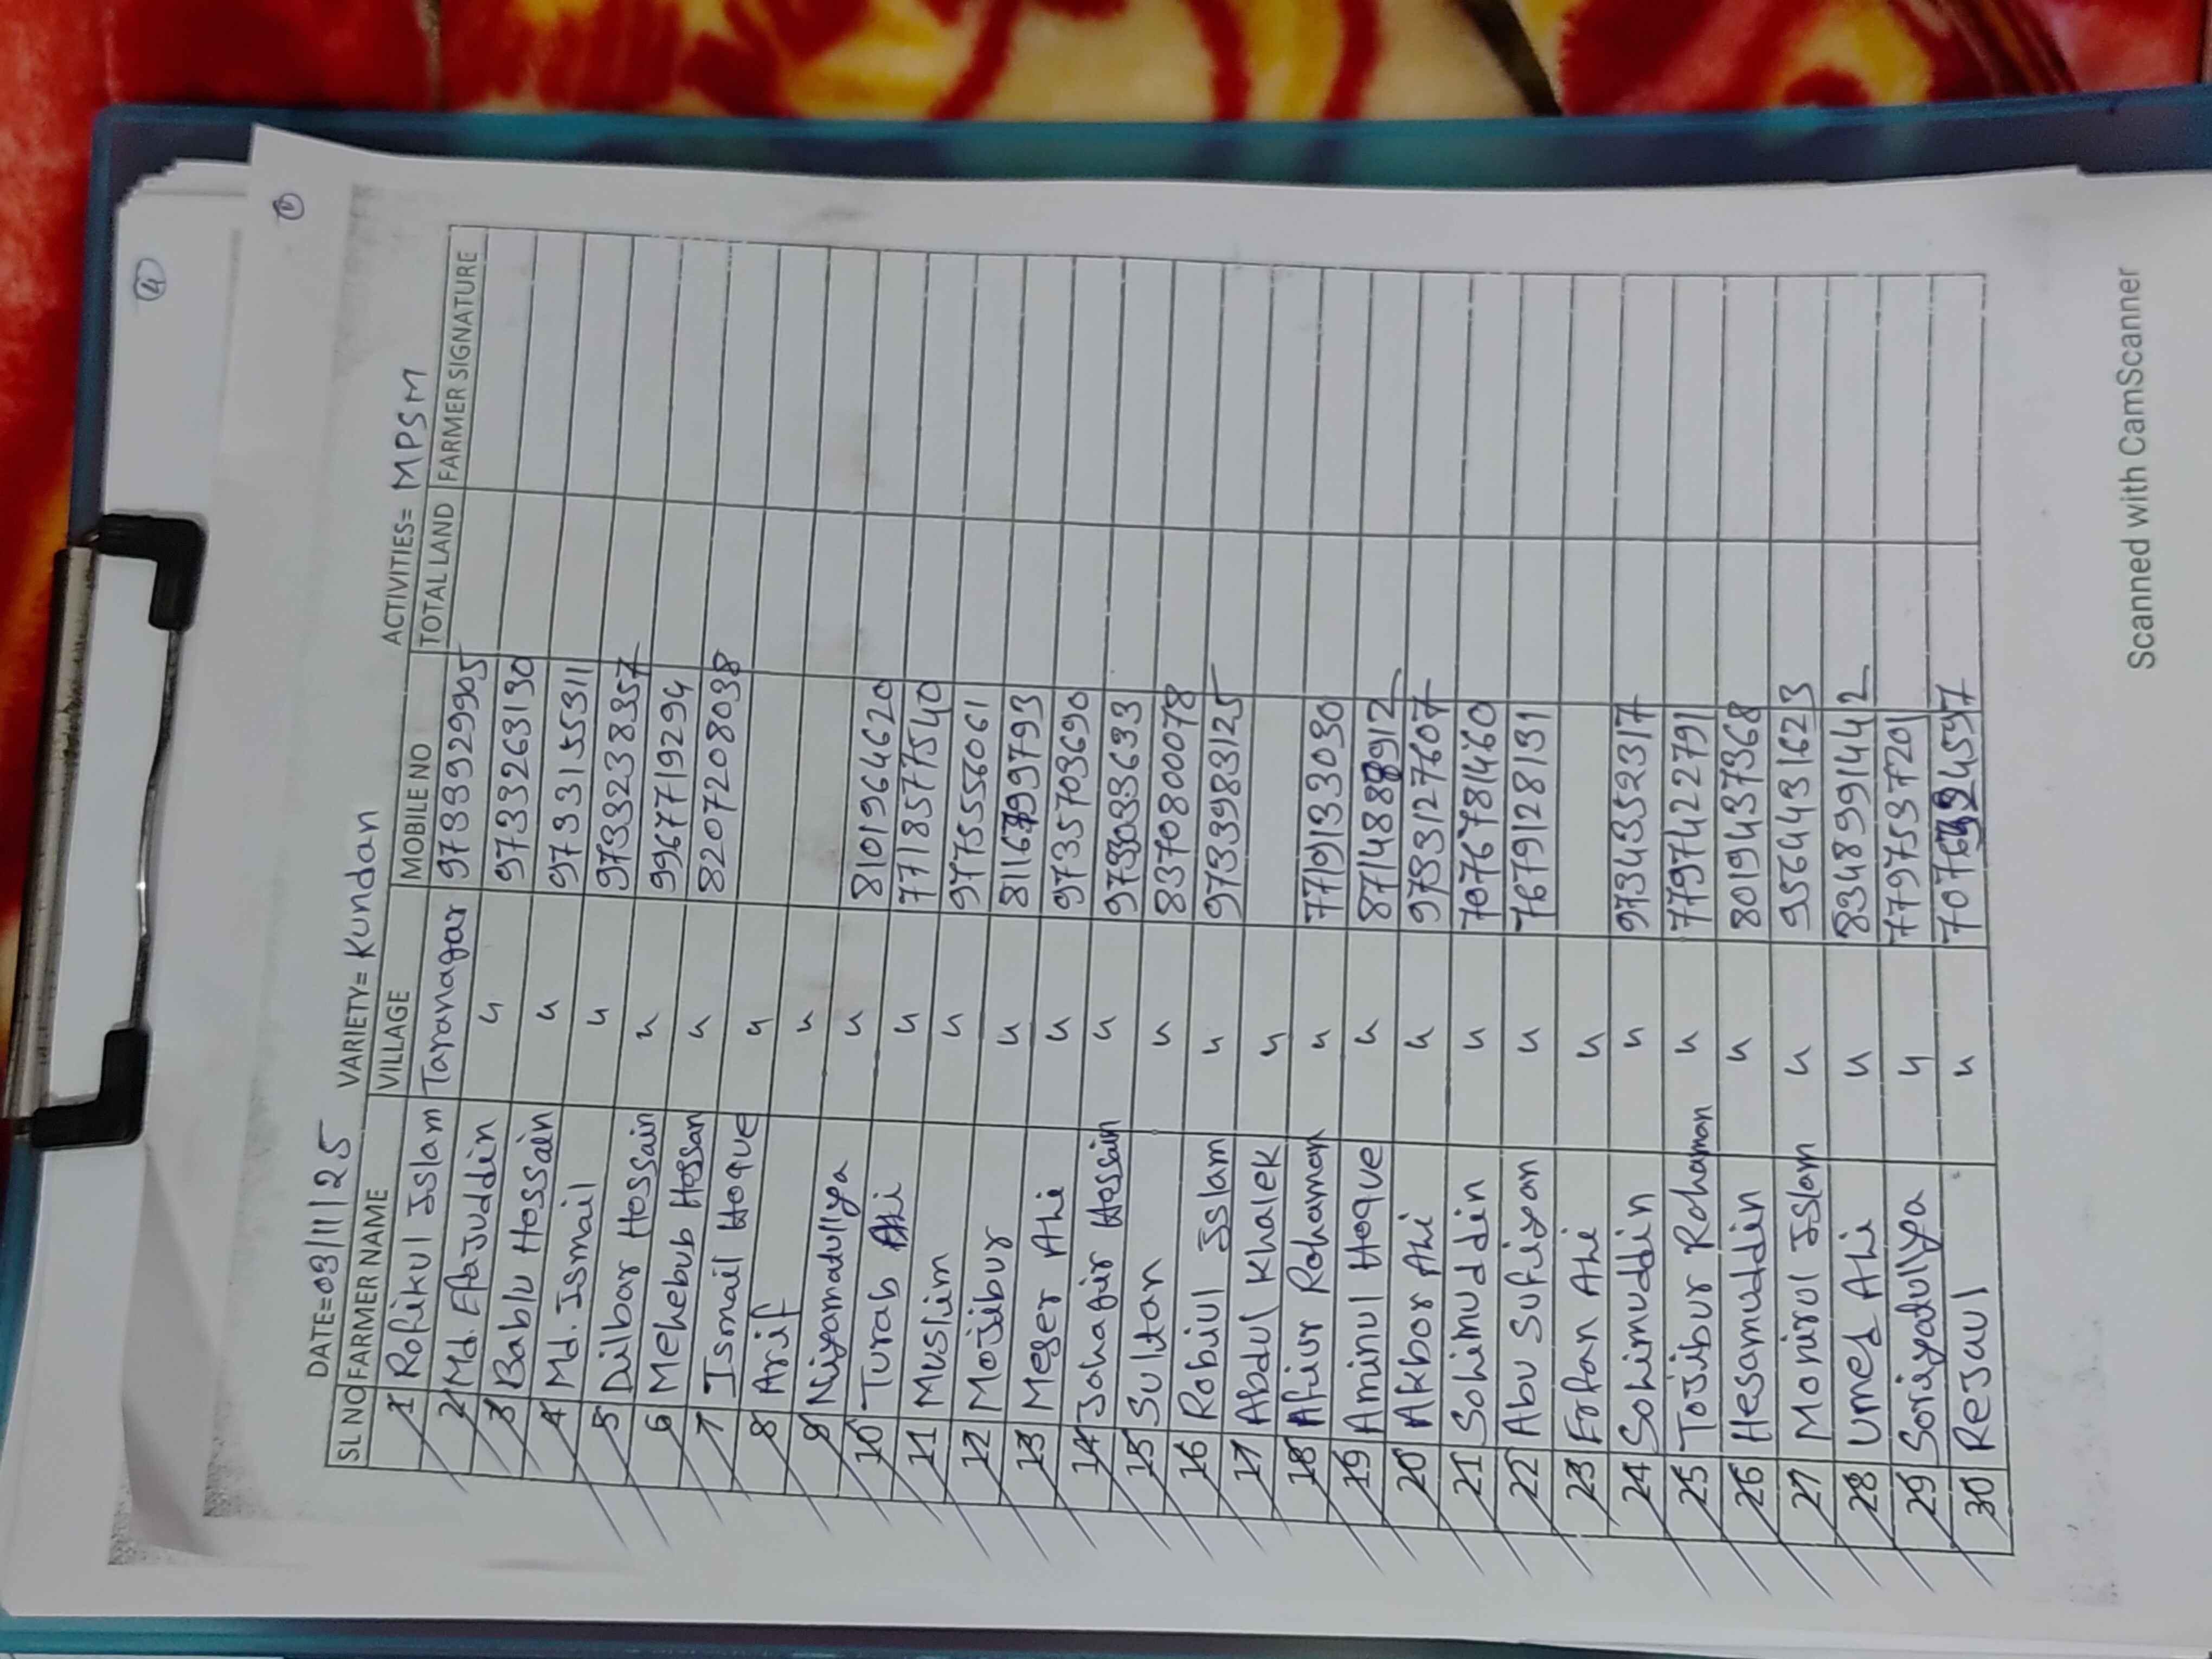 4
1
DATE=03/11/25 VARIETY= Kundan ACTIVITIES= MPSM
SL NO FARMER NAME VILLAGE MOBILE NO TOTAL LAND FARMER SIGNATURE
1 Rofikul Islam Taranagar 9733929905
2 Md. Efajuddin " 9733263130
3 Bablu Hossain " 9733155311
4 Md. Ismail " 9733238357
5 Dilbar Hossain " 9967719294
6 Mehebub Hossan " 8207208038
7 Ismail Hoque "
8 Arif "
9 Niyamatullya " 8101964620
10 Turab Ali " 7718577540
11 Muslim " 9775556061
12 Mojibur "
13 Meser Ali " 9735703690
14 Jahagir Hossain "
15 Sultan " 8370800078
16 Robiul Islam " 9733983125
17 Abdul Khalek "
18 Afiur Rohaman " 7719133030
19 Aminul Hoque "
20 Akbor Ali " 9733127607
21 Sohimuddin " 7076781460
22 Abu Sufiyan " 7679128131
23 Erfan Ali "
24 Sohimuddin " 9734352317
25 Tojibur Rohaman " 7797422791
26 Hesamuddin " 8019437368
27 Monirul Islam " 9564431623
28 Umed Ali " 8348991442
29 Soriyatullya " 7797537201
30 Rejaul "
Scanned with CamScanner